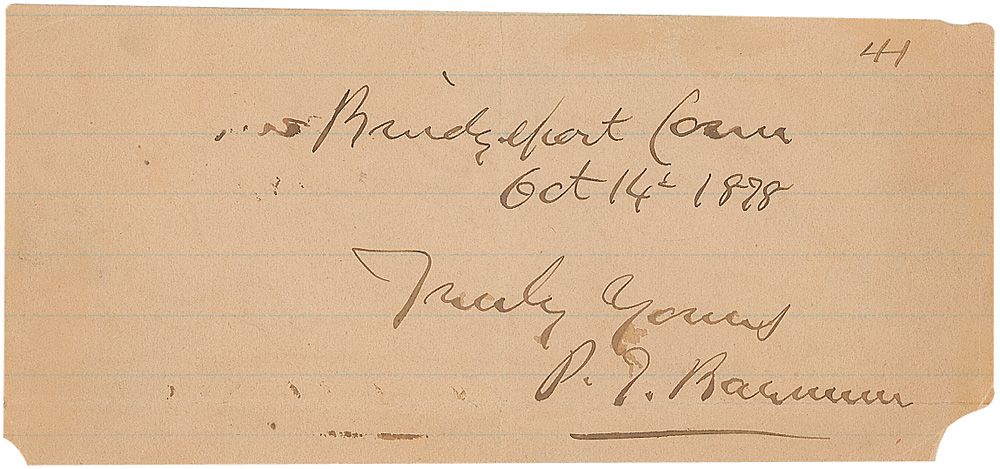 41
Bridgeport Conn
Oct 14th 1878
Truly Yours
P. T. Barnum